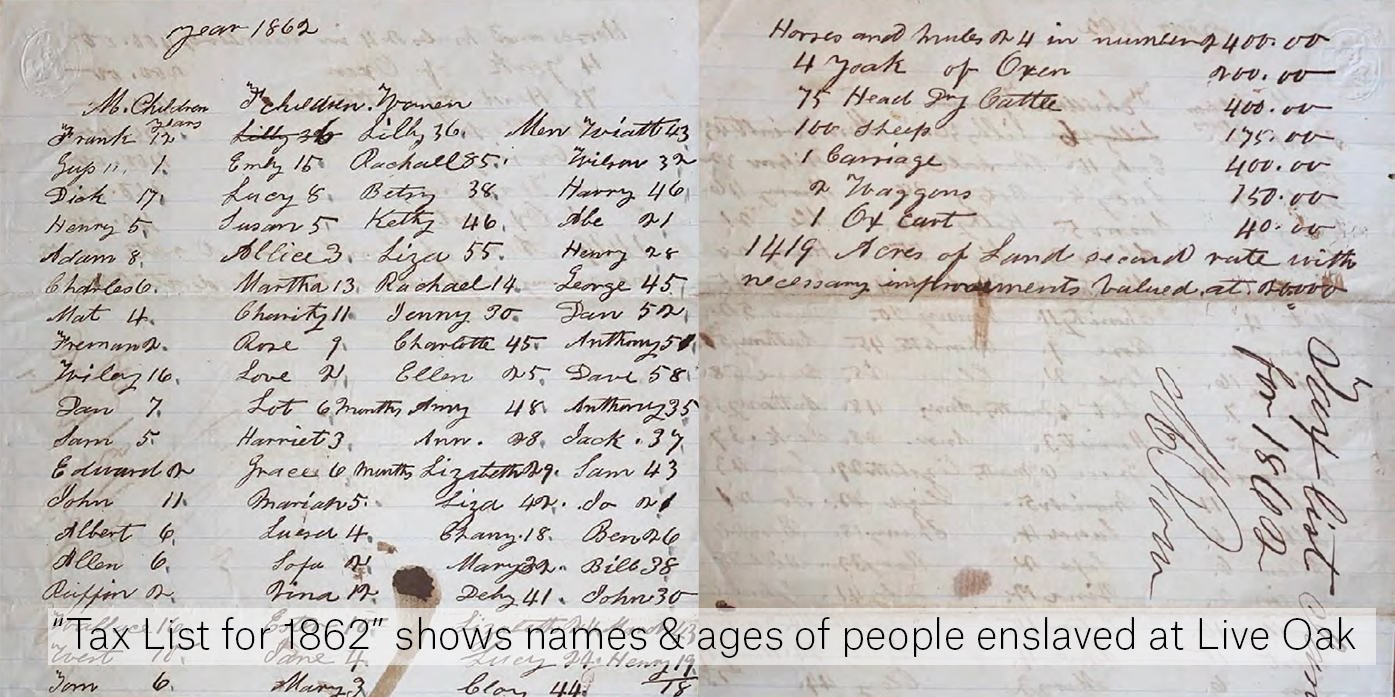 year 1862
M. Children F children. Women
years
Frank 12 Lilly 36 Lilly 36. Men Wiatt 43
Gus 11. Emly 15 Rachall 85. Wilson 32
Dick 17. Lucy 8 Betsy 38. Harry 46
Henry 5. Susan 5 Ketty 46. Abe 21
Adam 8. Allice 3. Liza 55. Henry 28
Charles 6. Martha 13 Rachael 14. George 45
Mat 4. Charity 11 Jenny 30 Dan 52
Freman 2. Rose 9. Charlotte 45. Anthony 51
Wiley 16. Love 2 Ellen 25. Dave 58
Dan 7. Lot 6 months Amy 48. Anthony 35
Sam 5. Harriet 3 Ann. 28. Jack. 37
Edward 2 Grace 6 months Lizabeth 29. Sam 43
John 11. Mariah 5. Liza 42. Jo 21
Albert 6. 4. Chany. 18. Ben 26
Allen 6. Sofa 2. Mary 32. Bill 38
Ruffin 2. Vina 12. Deby 41. John 30
Wallace
West 10. Jane 4. Lucy 24. Henry 19
Tom 6. Mary 3 44. 18
Horses and mules 24 in number 2400.00
4 Yoak of Oxen 200.00
75 Head Dry Cattle 400.00
100 Sheep 175.00
1 Carriage 400.00
2 Waggons 150.00
1 Ox Cart 40.00
1419 Acres of Land second rate with
necessary improvements Valued at 20000
list
for 1862
"Tax List for 1862" shows names & ages of people enslaved at Live Oak